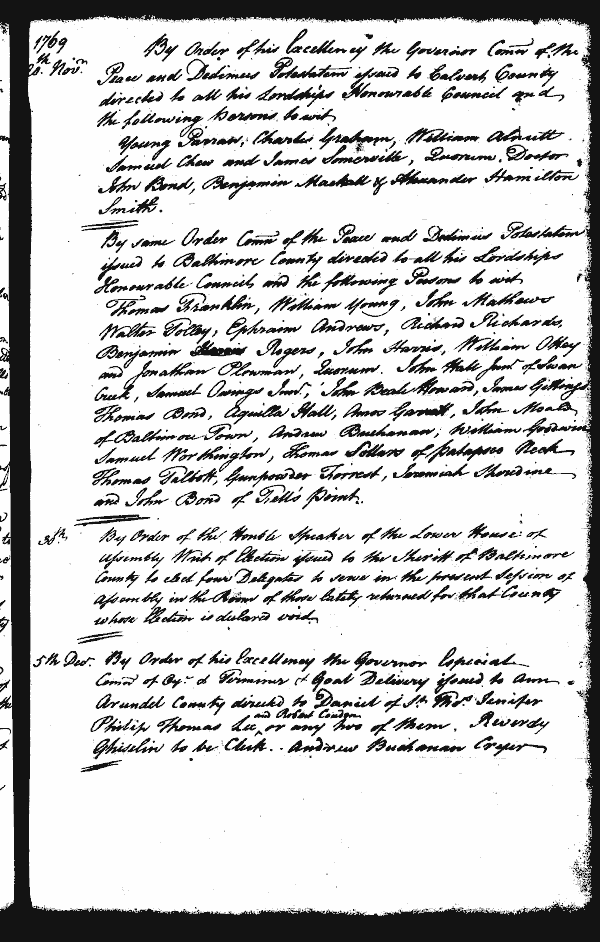 1769
20th Novr. By Order of his Excellency the Governor Comn of the
Peace and Dedimus Potestatem issued to Calvert County
directed to all his Lordships Honourable Council and
the following Persons to wit
Young Parran, Charles Graham, William
Samuel Chew and James Somerville, Quorum. Doctor
John Bond, Benjamin Mackall & Alexander Hamilton
Smith.
By same Order Comn of the Peace and Dedimus Potestatem
issued to Baltimore County directed to all his Lordships
Honourable Council, and the following Persons to wit
Thomas Franklin, William Young, John Mathews
Walter Tolley, Ephraim Andrews, Richard Richards,
Benjamin Rogers, John Harris, William Otley
and Jonathan Plowman, Quorum. John Hall Junr. of Swan
Creek, Samuel Owings Junr, John Beale Howard, James Gittings
Thomas Bond, Aquilla Hall, Amos Garrett, John Moale
of Baltimore Town, Andrew Buchanan, William Godwin
Samuel Worthington, Thomas Sollars of Patapsco Neck
Thomas Talbott, Gunpowder Forrest, Jeremiah Sheredine
and John Bond of Fells Point.
30th. By Order of the Honble Speaker of the Lower House of
Assembly Writ of Election issued to the Sheriff of Baltimore
County to elect four Delegates to serve in the present Session of
Assembly in the Room of those lately returned for that County
whose Election is declared void
5th Decr. By Order of his Excellency the Governor Especial
Comn of Oyr. & Terminer & Goal Delivery issued to Ann
Arundel County directed to Daniel of St. Thos. Jenifer
and Robert Couden
Philip Thomas Lee, or any two of them. Reverdy
Ghiselin to be Clerk. Andrew Buchanan Cryer